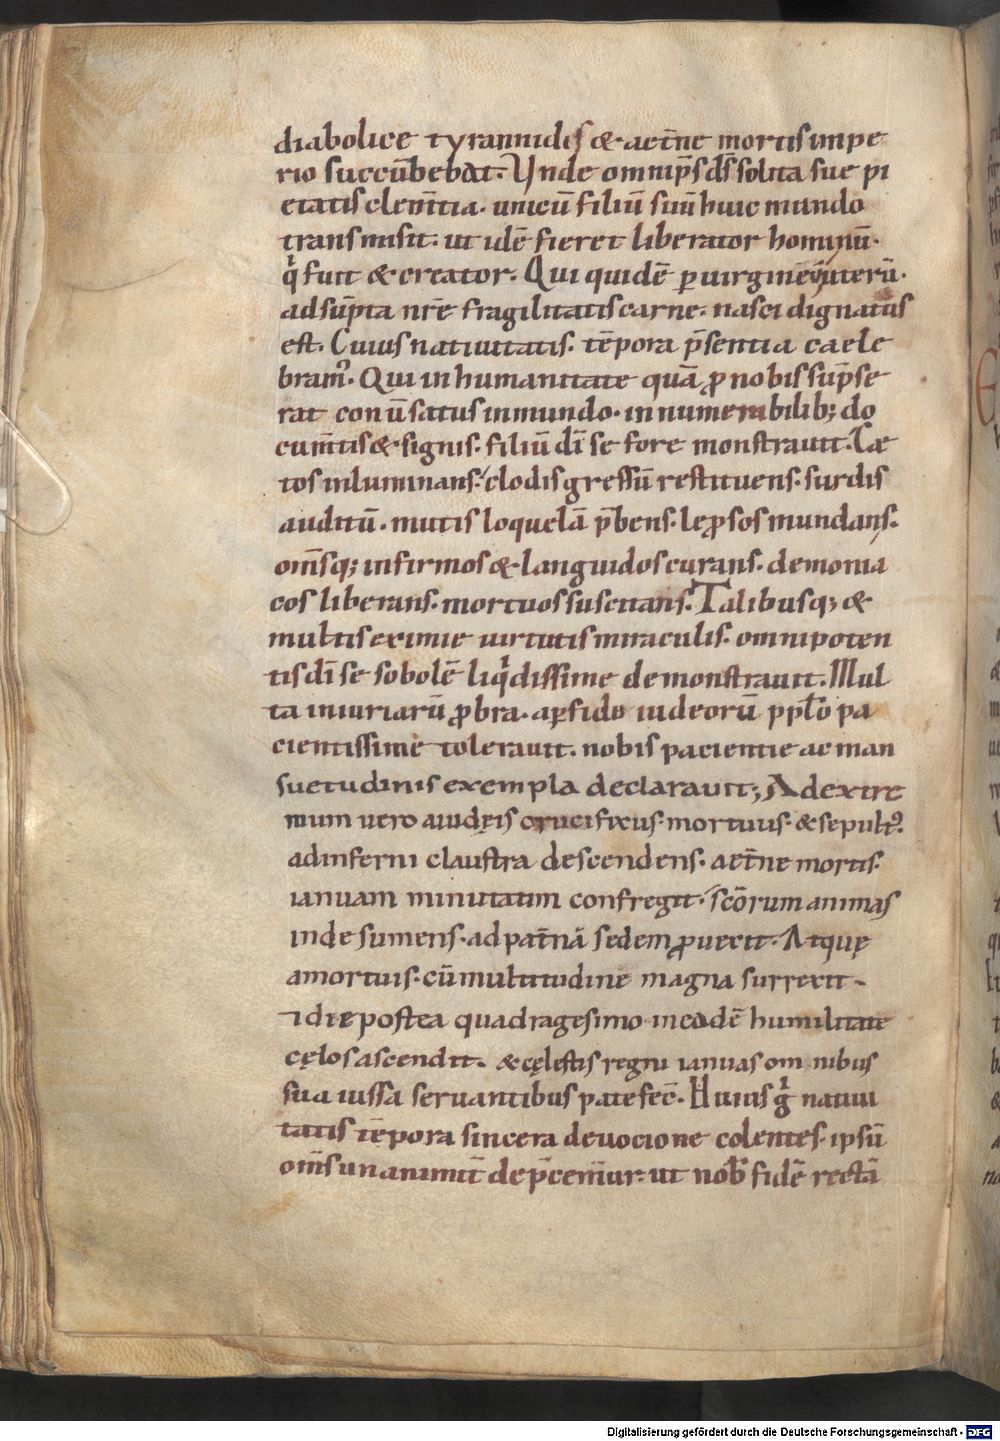 diabolice tyrannidis & aet̄ne mortis impe
rio succūbebat. Unde omnip̄s d̄s solita sue pi
etatis clem̄tia. unicū filiū suū huic mundo
transmisit. ut idē fieret liberator hominū.
qⁱ fuit & creator. Qui quidē ꝑ virginēū uterū.
adsūpta nr̄e fragilitatis carne. nasci dignatus
est. Cuius nativitatis. tēpora p̄sentia caele
bram᾽. Qui in humanitate quā ꝓ nobis sūpse
rat conūsatus in mundo. innumerabilib; do
cum̄tis & signis. filiū dī se fore monstravit. Cae
tos inluminans. clodis gressū restituens. surdis
auditū. mutis loquelā p̄bens. leꝓsos mundans.
om̄sq; infirmos & languidos curans. demonia
cos liberans. mortuos suscitans. Talibusq; &
multis eximie virtutis miraculis. omnipoten
tis dī se sobolē liqⁱdissime demonstravit. Mul
ta iniuriarū ꝓbra. aꝑfido iudeorū ppl̄o pa
cientissime toleravit. nobis pacientie ac man
suetudinis exempla declaravit; Ad extre
mum vero a iudęis crucifixus. mortuus. & sepult᾽.
ad inferni claustra descendens. aet̄ne mortis.
ianuam minutatim confregit. sc̄orum animas
inde sumens. ad pat̄nā sedem ꝓvexit. Atquę
a mortuis. cū multitudine magna surrexit.
die postea quadragesimo in eadē humilitate
cęlos ascendit. & cęlestis regni ianuas omnibus
sua iussa servantibus patefec̄. Huius gⁱ nativi
tatis tēpora sincera devocione colentes. ipsū
om̄s unanimit̄ dep̄cem̄ur. ut nob̄ fidē rectā
Digitalisierung gefördert durch die Deutsche Forschungsgemeinschaft - DFG